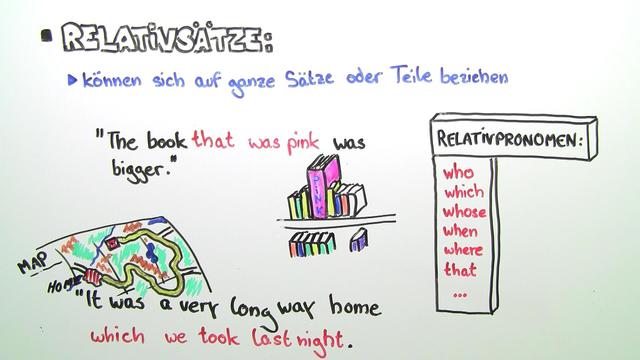 RELATIVSÄTZE:
können sich auf ganze Sätze oder Teile beziehen
"The book that was pink was
bigger."
PINK
RELATIVPRONOMEN:
who
which
whose
when
where
that
...
MAP
HOME
"It was a very long way home
which we took last night.